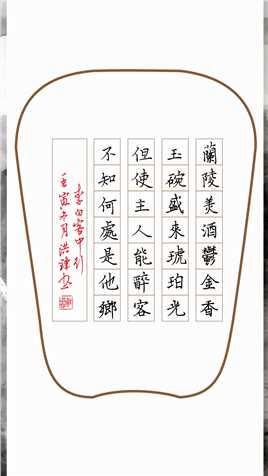 蘭陵美酒鬱金香
玉碗盛來琥珀光
但使主人能醉客
不知何處是他鄉
李白客中行
壬寅六月洪鐘書